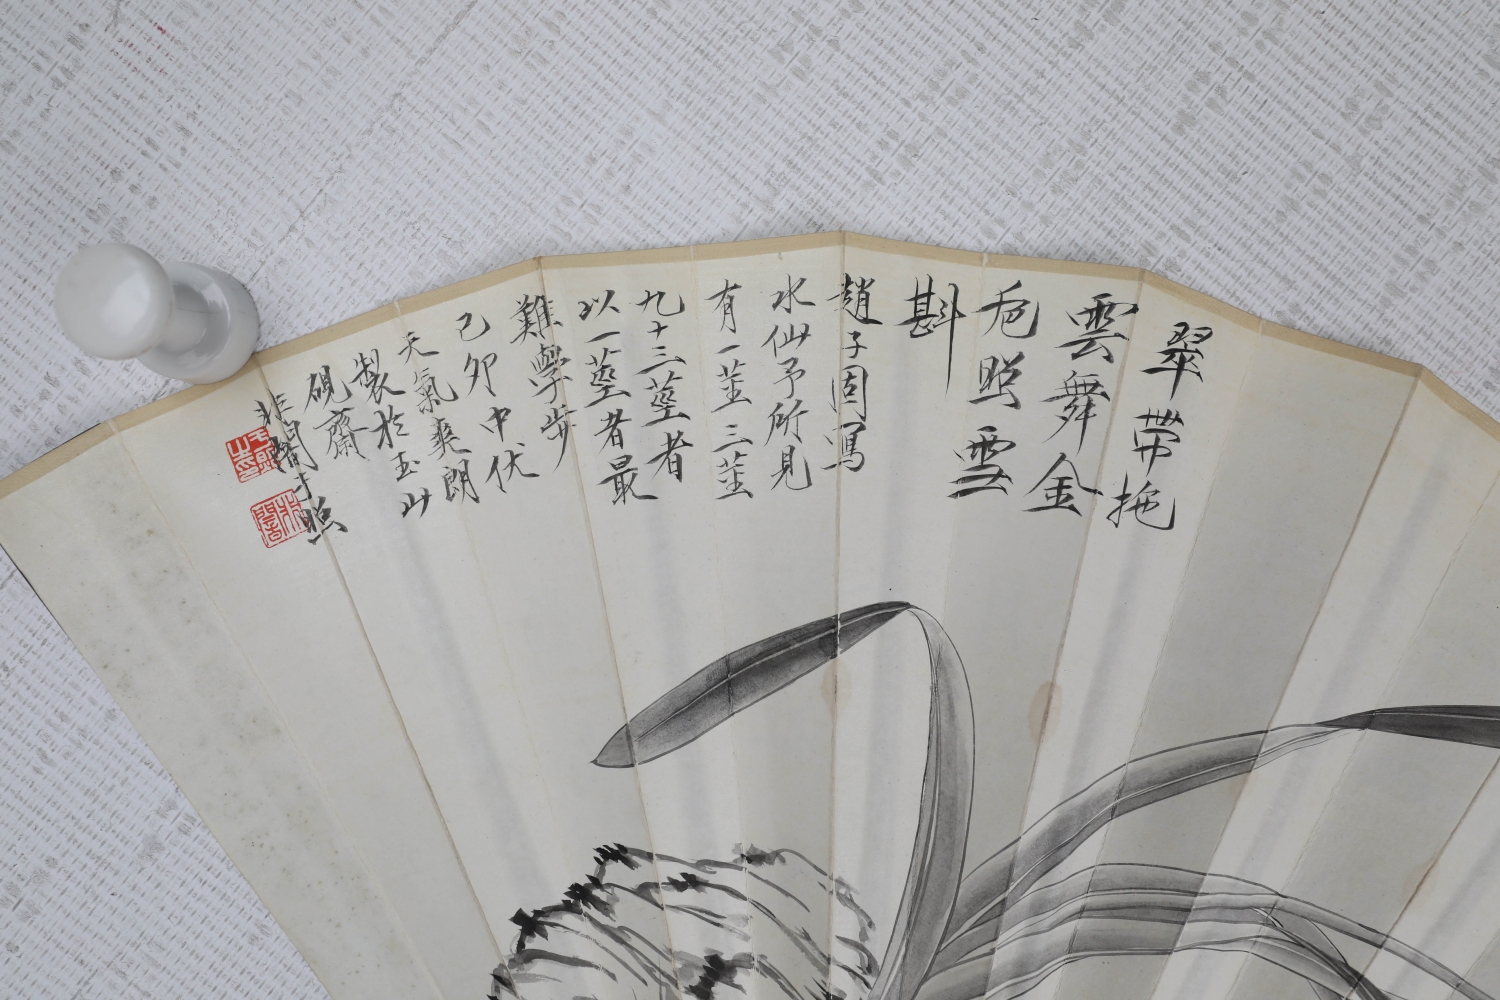 翠帶拖
雲舞金
卮照雪
斟
趙子固寫
水仙予所見
有一莖三莖
九十三莖者
以一莖者最
難學步
己卯中伏
天氣爽朗
製於玉山
硯齋
非闇于照
非闇